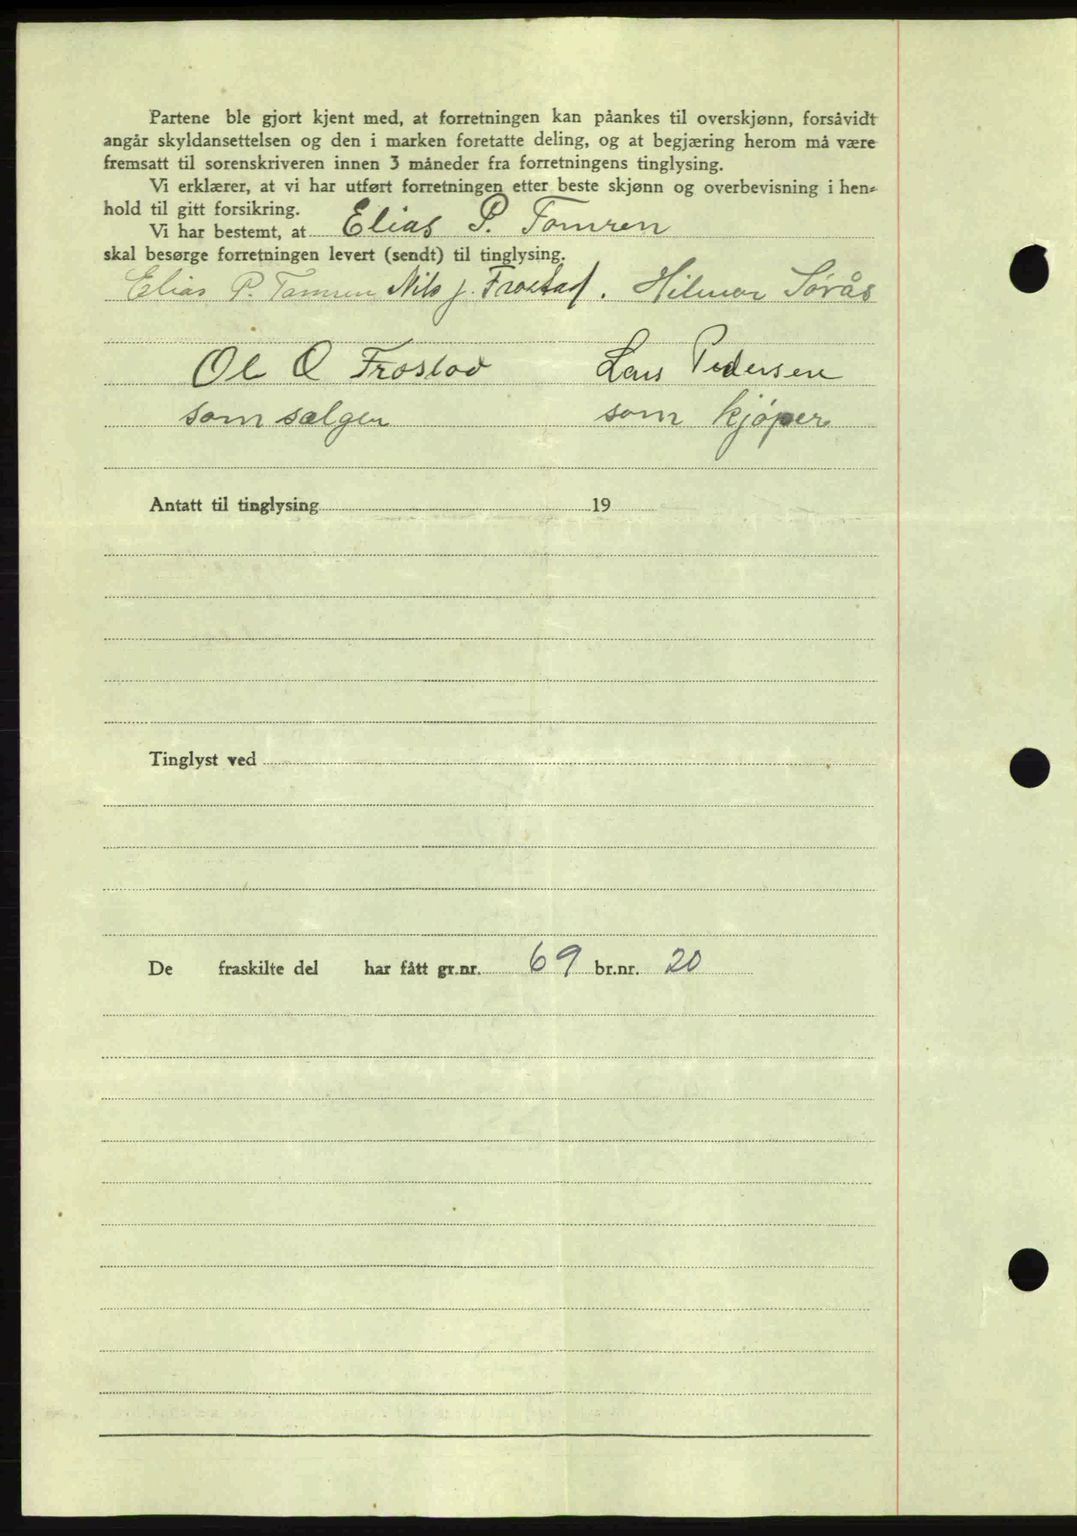 Partene ble gjort kjent med, at forretningen kan påankes til overskjønn, forsåvidt
angår skyldansettelsen og den i marken foretatte deling, og at begjæring herom må være
fremsatt til sorenskriveren innen 3 måneder fra forretningens tinglysing.
Vi erklærer, at vi har utført forretningen etter beste skjønn og overbevisning i hen-
hold til gitt forsikring.
Vi har bestemt, at Elias P. Tomren
skal besørge forretningen levert (sendt) til tinglysing.
Elias P. Tomren Nils J. Frostad. Hilmar Sørås
Ol O Frostad Lars Pedersen
som sælger som kjøper
Antatt til tinglysing 19
Tinglyst ved
De fraskilte del har fått gr.nr. 69 br.nr. 20